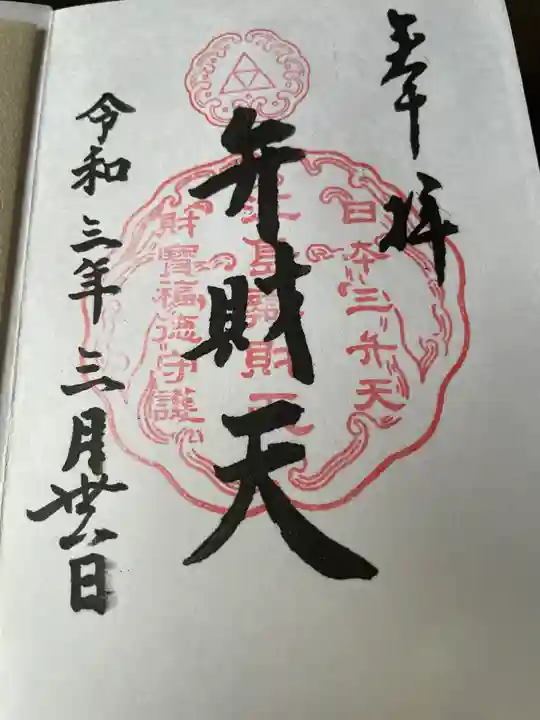 奉拝
日本三弁天
江島辯財天
財寶福徳守護
弁財天
令和三年三月廿六日